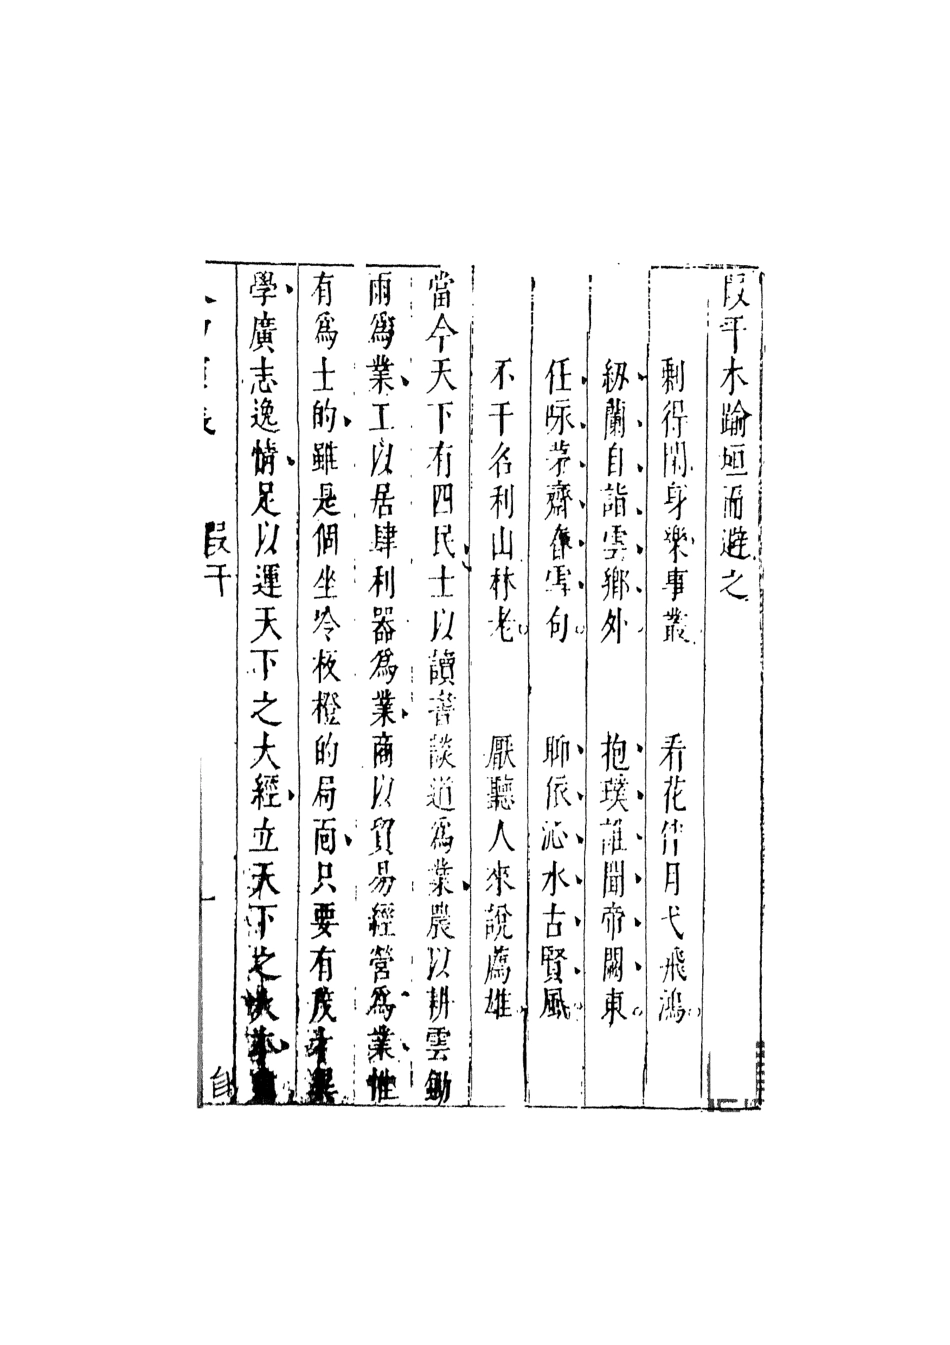 段干木踰垣而避之
剩得閒身樂事叢　看花伴月弋飛鴻
紉蘭自詣雲鄉外　抱璞誰聞帝闕東
任咏茅齋雪句　聊依沁水古賢風
不干名利山林老　厭聽人來說薦雄
當今天下有四民士以讀書談道爲業農以耕雲鋤
雨爲業工以居肆利器爲業商以貿易經營爲業惟
有爲士的雖是個坐冷板橙的局面只要有茂才
學廣志逸情足以運天下之大經立天下之大本
段干
一